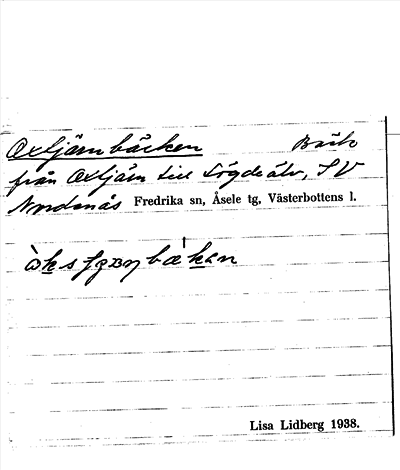 Oxtjärnbäcken Bäck
från Oxtjärn till Lögdeälv, SV
Nordanås Fredrika sn, Åsele tg, Västerbottens l.
Lisa Lidberg 1938.